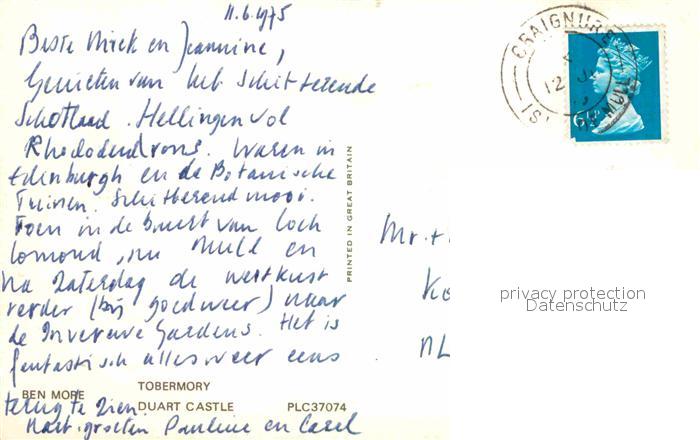 11.6.1975
Beste Miek en Jeannine,
Genieten van het schitterende
Schotland. Hellingen vol
Rhododendrons. Waren in
Edinburgh en de Botanische
Tuinen. Schitterend mooi.
Toen in de buurt van Loch
Lomond, nu Mull en
na zaterdag de westkust
verder (bij goed weer) naar
de Invereve Gardens. Het is
fantastisch alles weer eens
terug te zien.
Hart. groeten Pauline en Carel
BEN MORE
TOBERMORY
DUART CASTLE
PLC37074
PRINTED IN GREAT BRITAIN
CRAIGNURE
12 JU
Mr. +
NL
privacy protection
Datenschutz